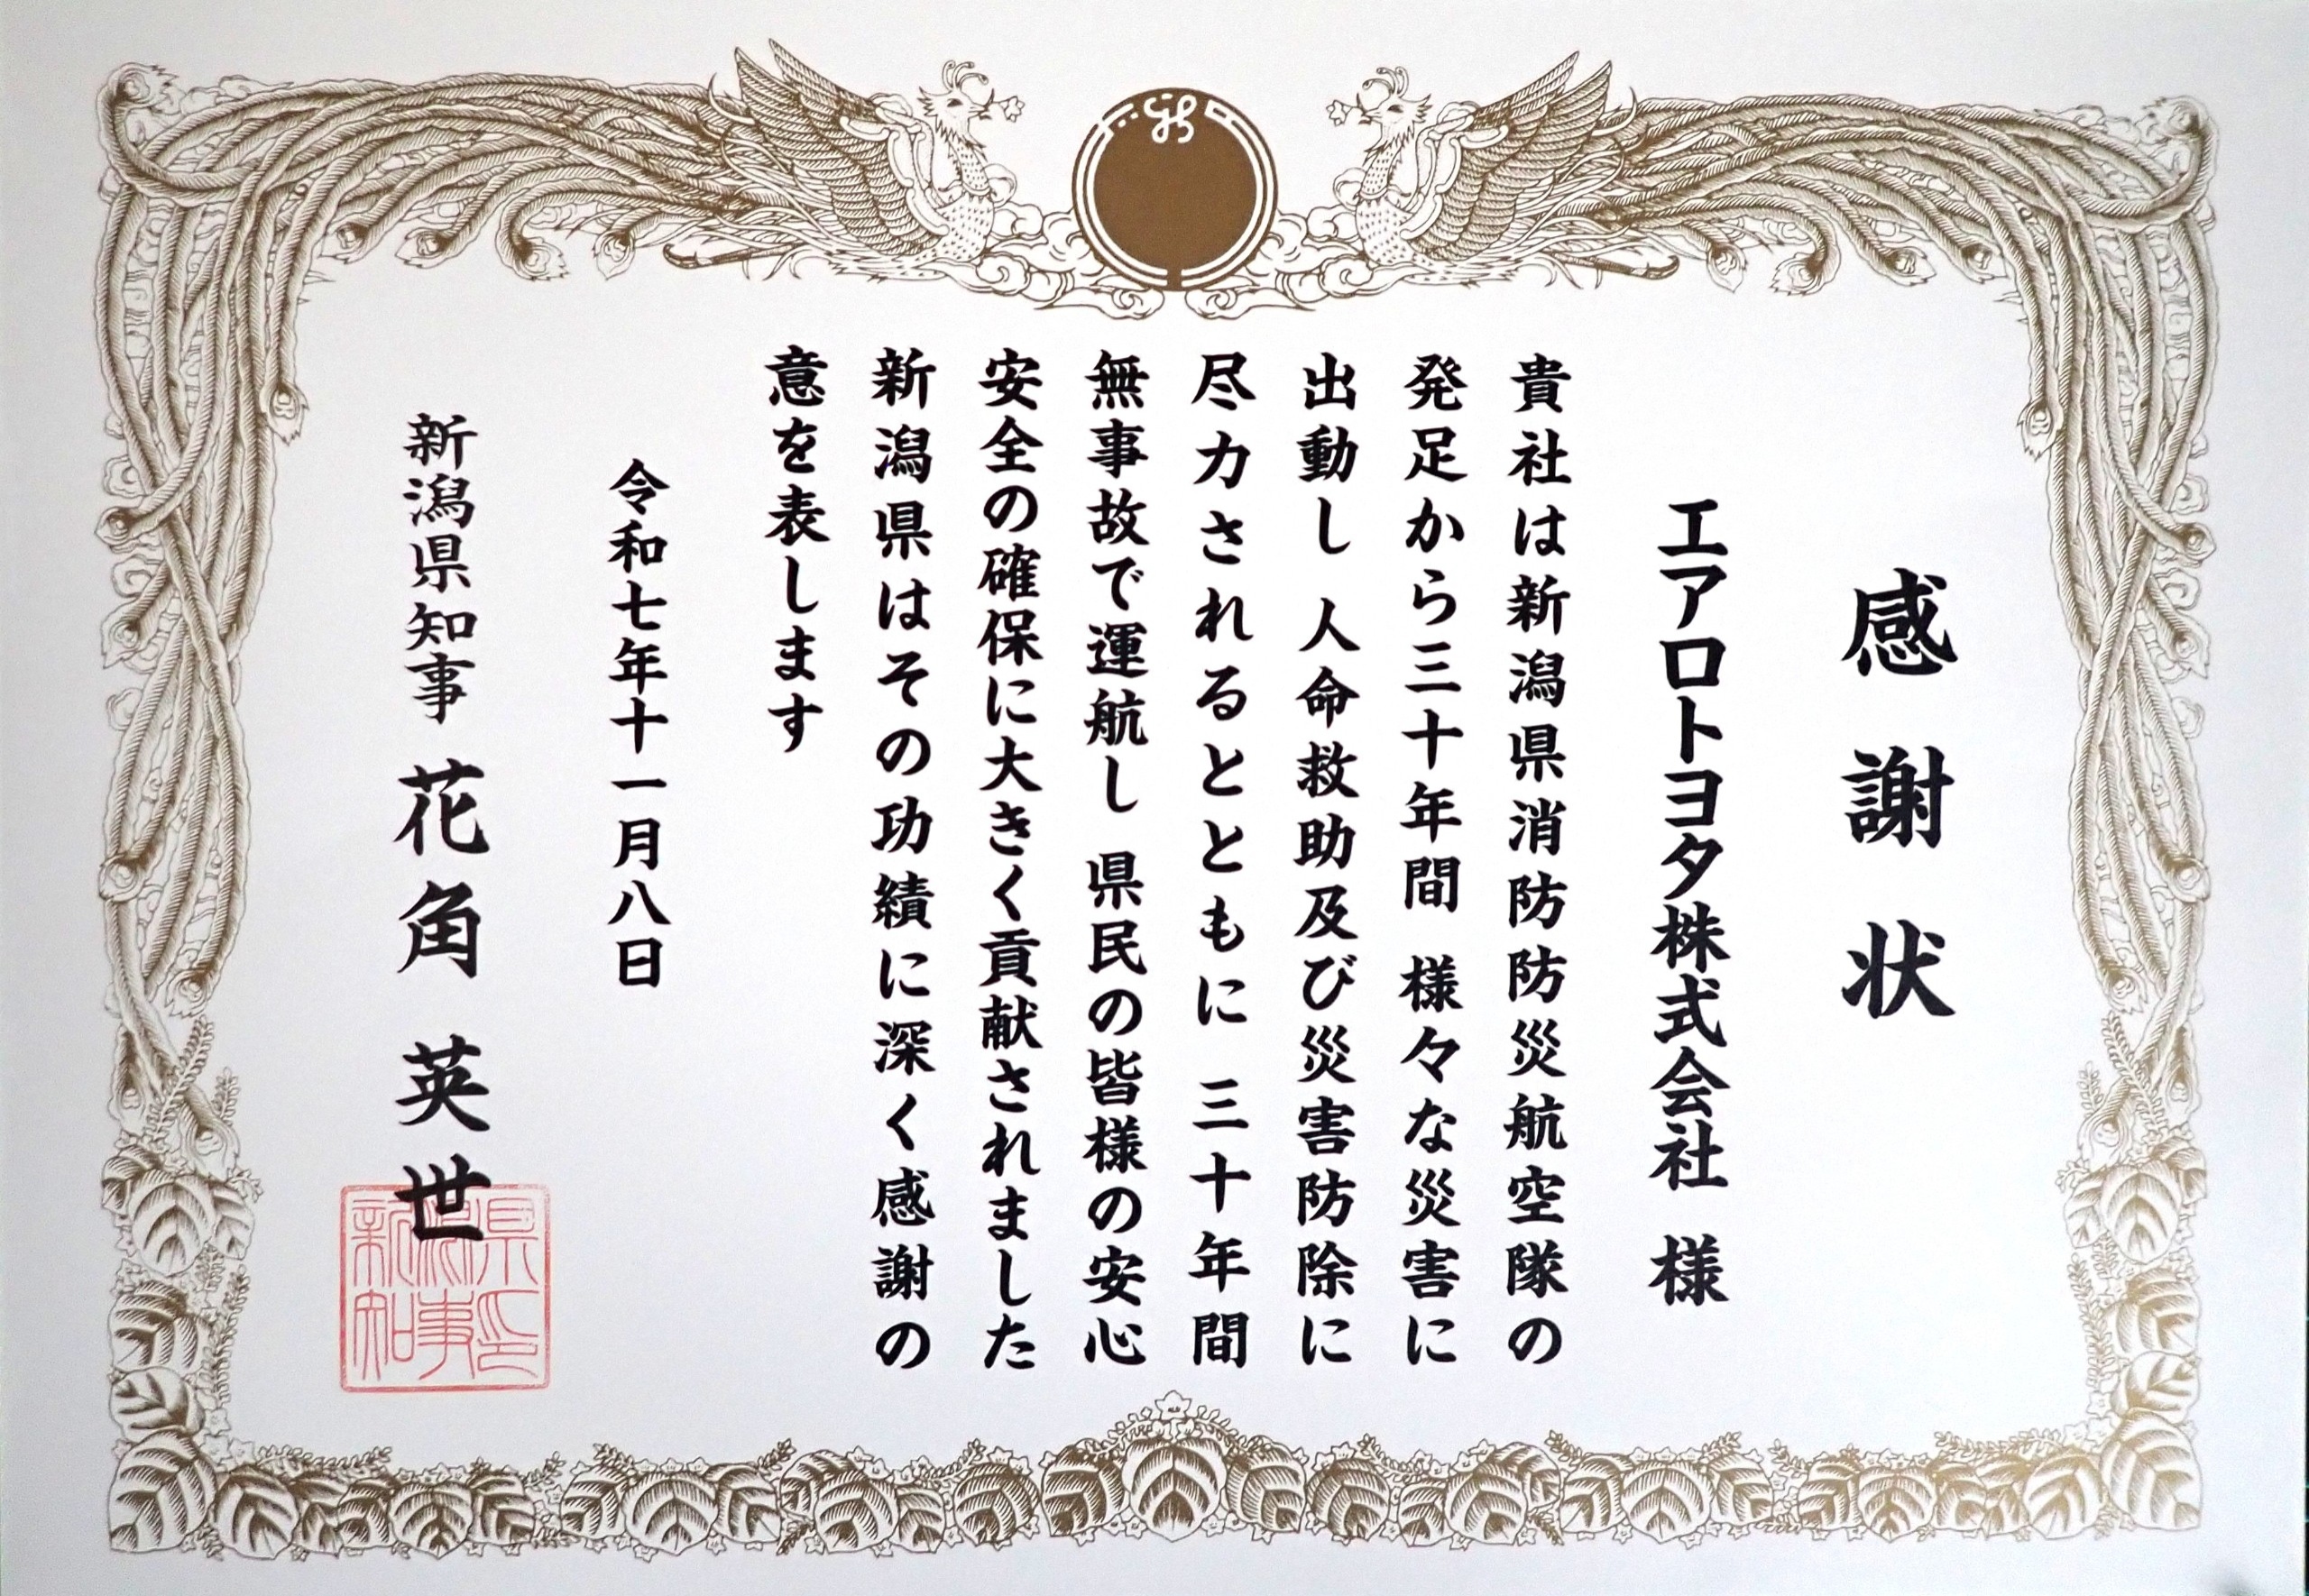 感謝状
エアロトヨタ株式会社 様
貴社は新潟県消防防災航空隊の
発足から三十年間 様々な災害に
出動し 人命救助及び災害防除に
尽力されるとともに 三十年間
無事故で運航し 県民の皆様の安心
安全の確保に大きく貢献されました
新潟県はその功績に深く感謝の
意を表します
令和七年十一月八日
新潟県知事 花角 英世
新潟県
知事印